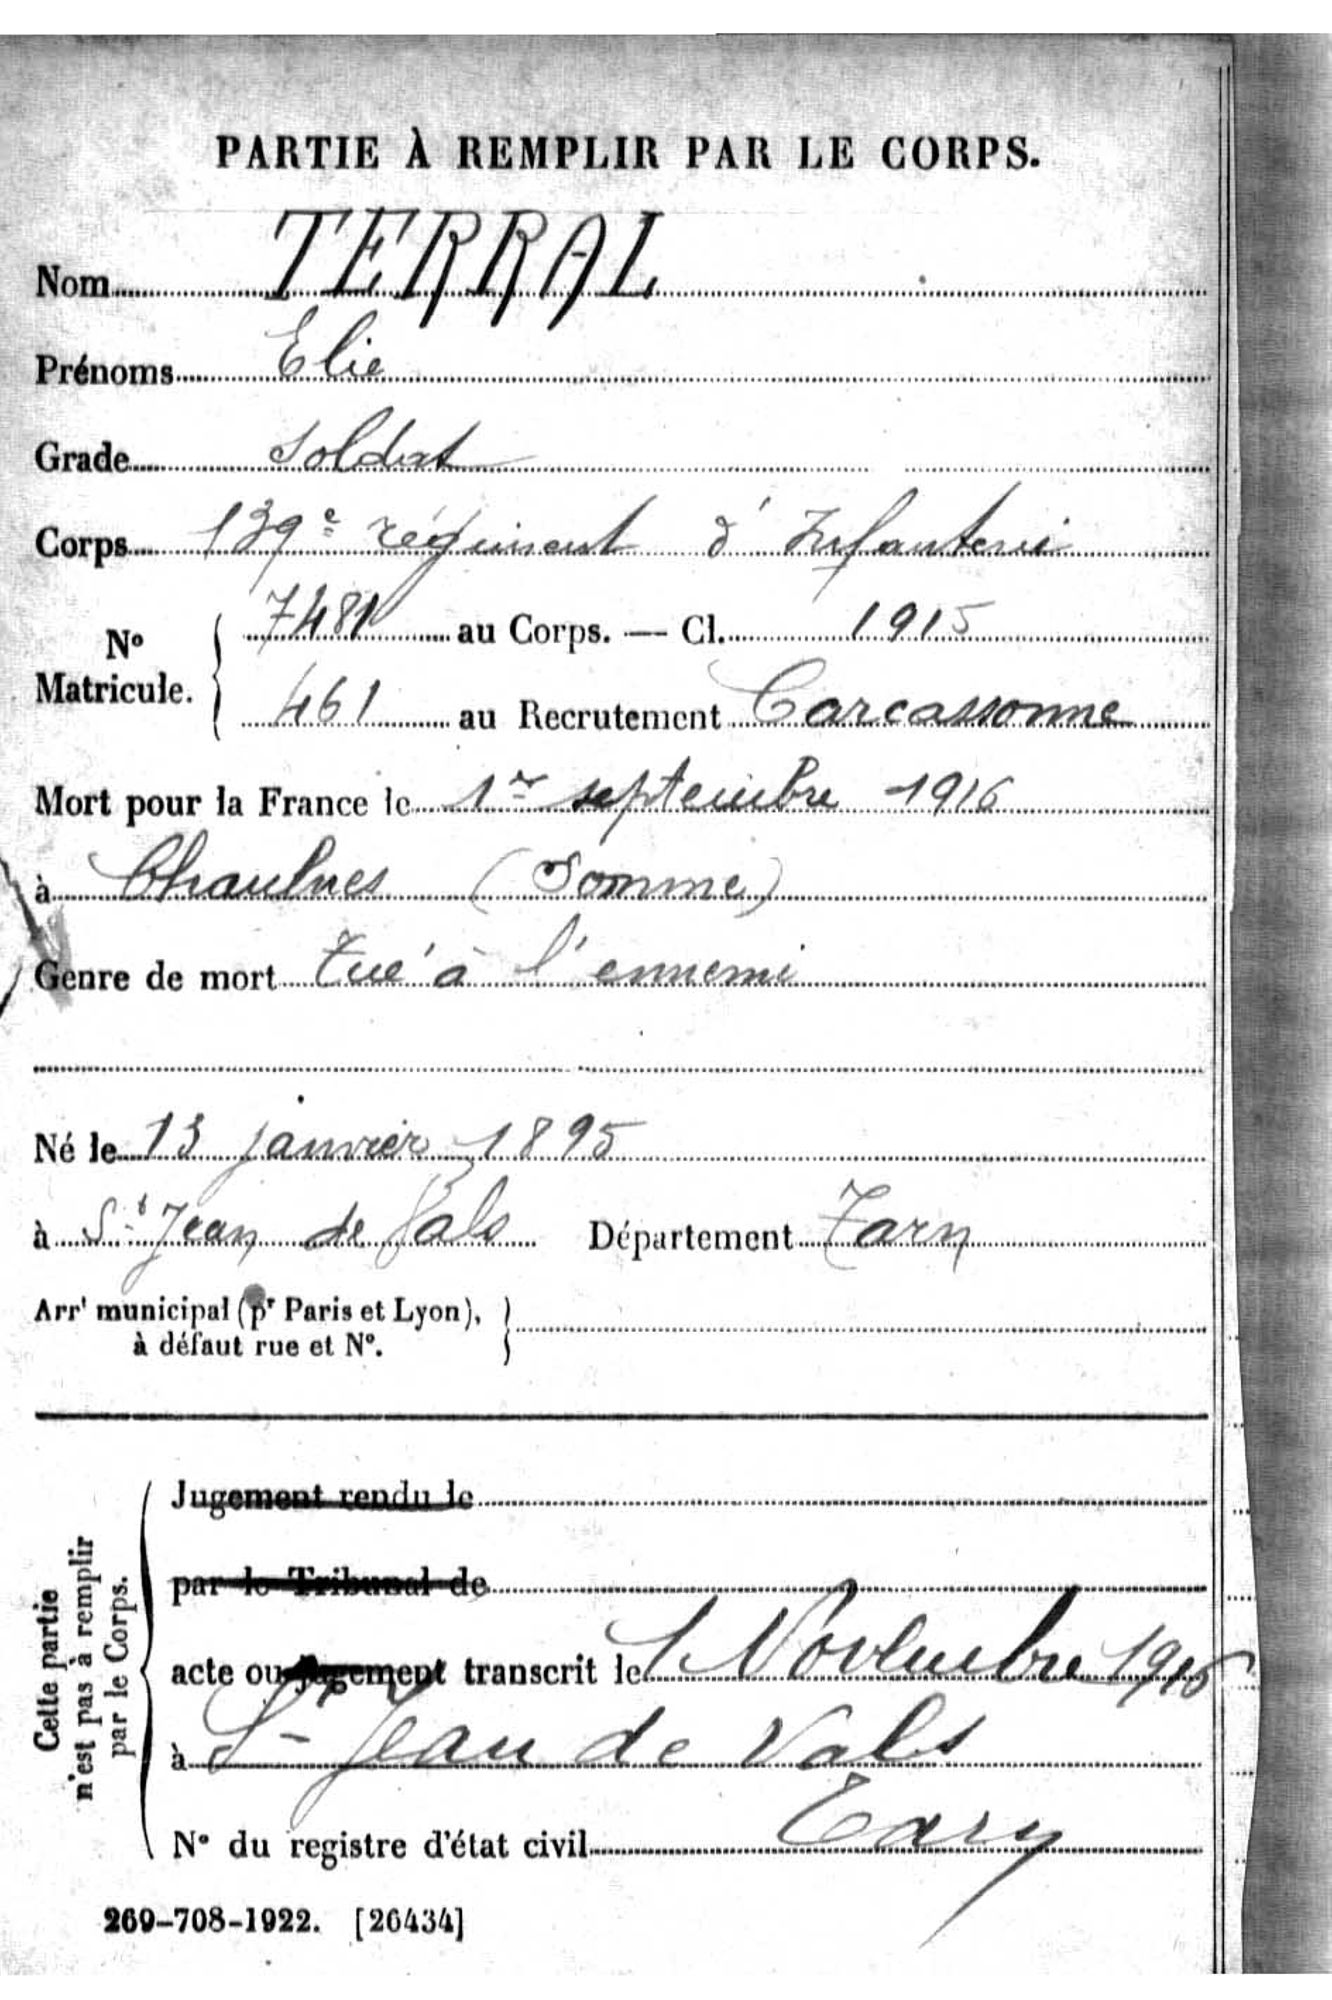 PARTIE À REMPLIR PAR LE CORPS.
Nom TERRAL
Prénoms Elie
Grade Soldat
Corps 139e régiment d'Infanterie
No Matricule. 7481 au Corps. — Cl. 1915
461 au Recrutement Carcassonne
Mort pour la France le 1er septembre 1916
à Chaulnes (Somme)
Genre de mort Tué à l'ennemi
Né le 13 janvier 1895
à St Jean de Vals Département Tarn
Arrt municipal (pr Paris et Lyon),
à défaut rue et No.
Cette partie
n'est pas à remplir
par le Corps.
Jugement rendu le
par le Tribunal de
acte ou jugement transcrit le 1 Novembre 1916
à St Jean de Vals
Tarn
No du registre d'état civil
269-708-1922. [26434]